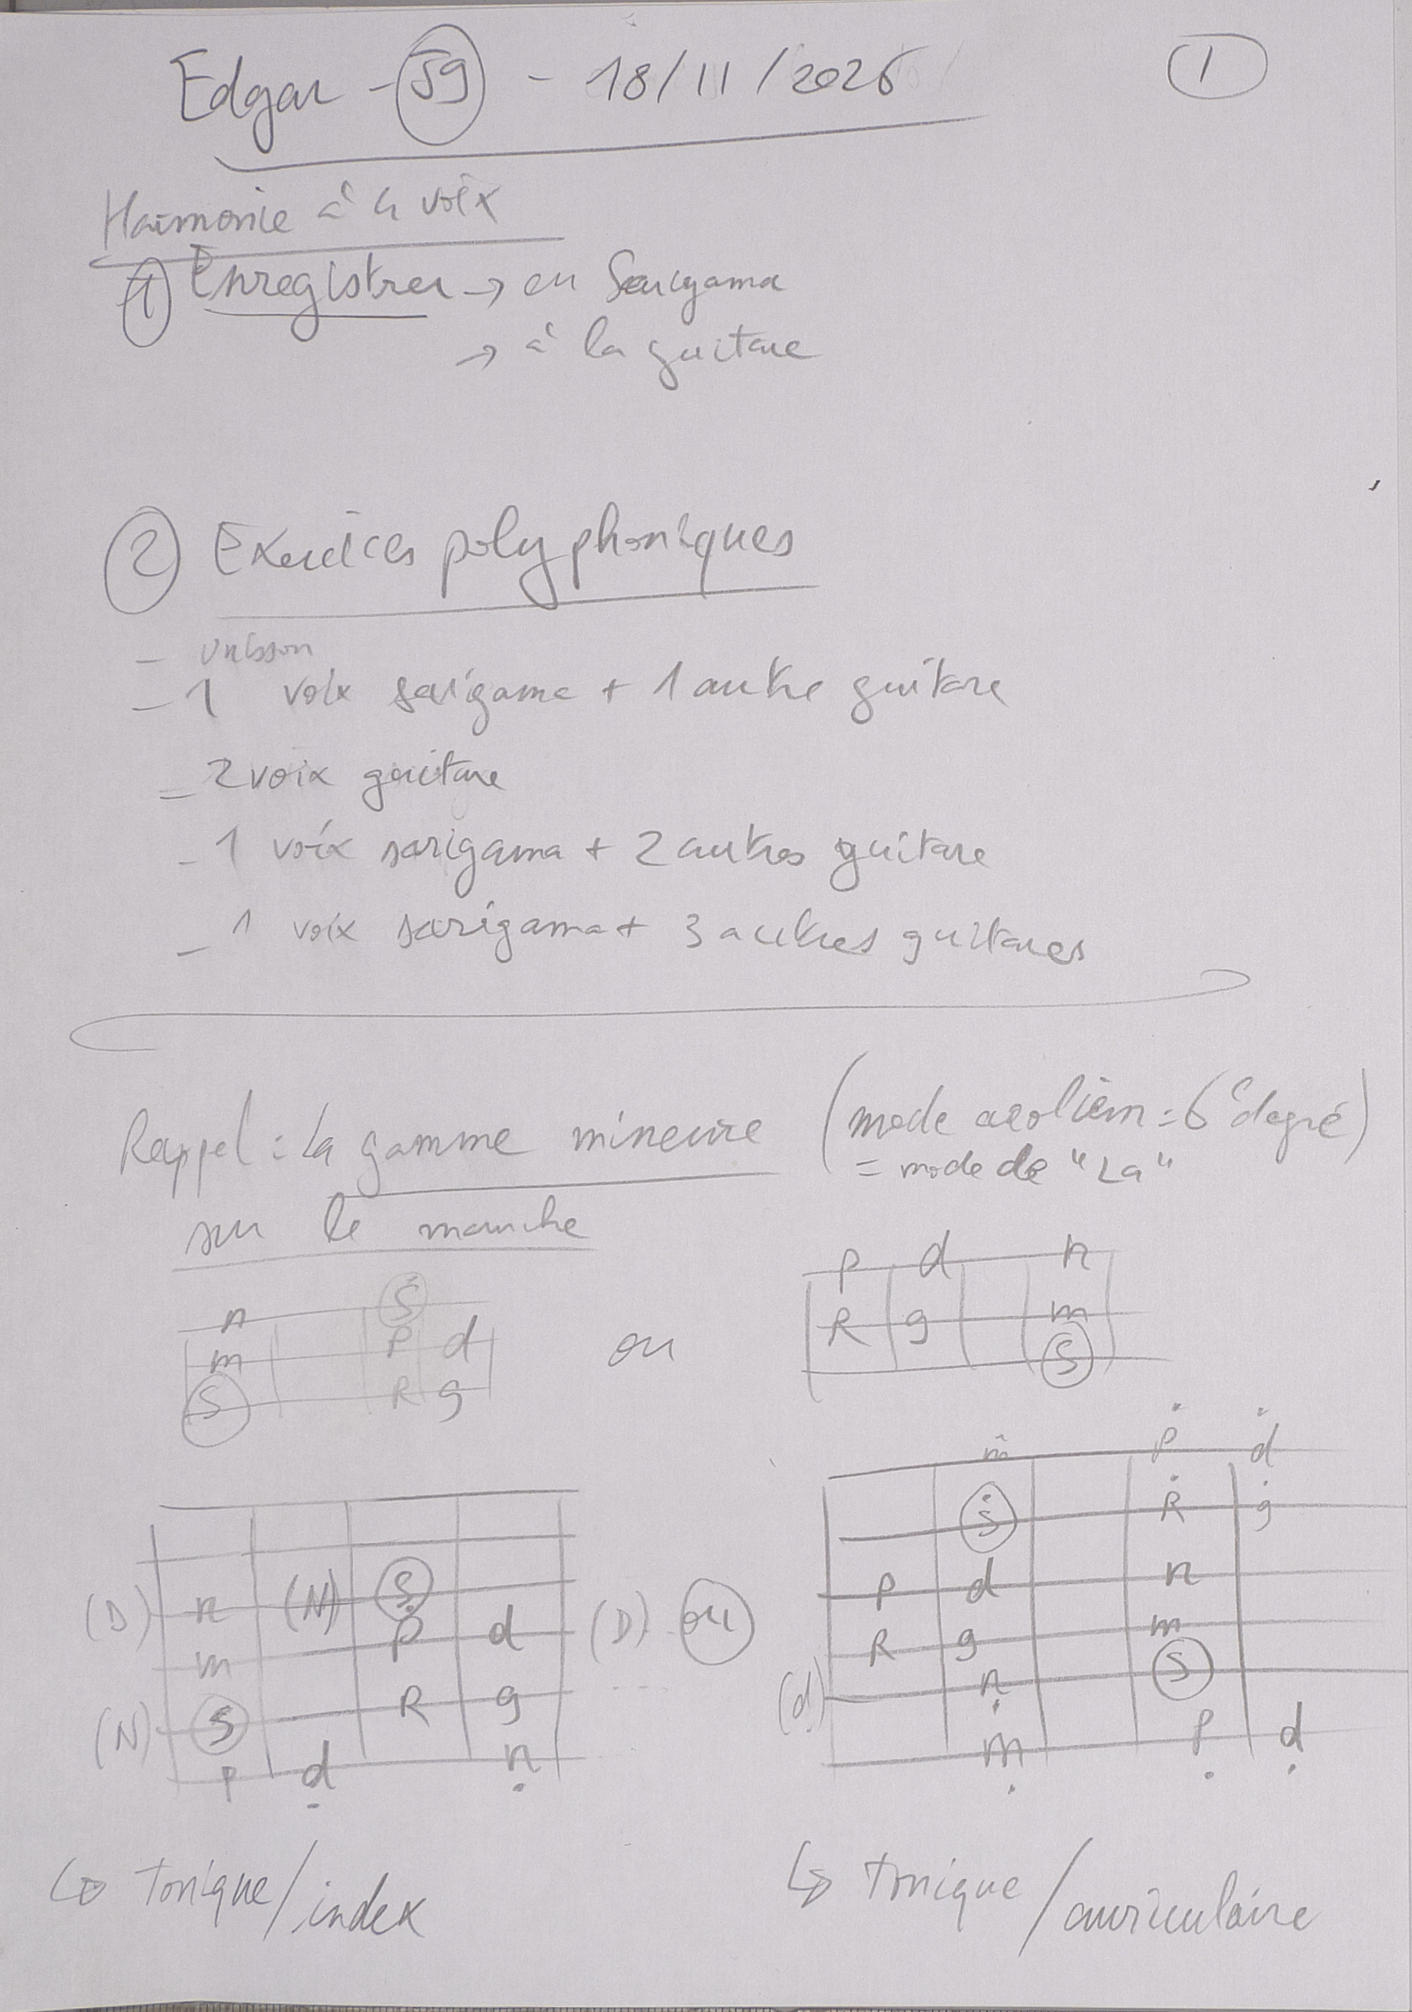 Edgar - 59 - 18/11/2025 1
Harmonie à la voix
1 Enregistrer → en Sarigama
→ à la guitare
2 Exercices polyphoniques
- Unisson
- 1 voix sarigama + 1 autre guitare
- 2 voix guitare
- 1 voix sarigama + 2 autres guitare
- 1 voix sarigama + 3 autres guitares
Rappel : la gamme mineure (mode aeolien = 6° degré)
= mode de "La"
sur le manche
n S
m P d
S R g
ou
P d n
R g m
S
(D) n (N) S
m P d (D)
(N) S R g
P d n
ou
m P d
S R g
P d n
R g m
(d) n S
m P d
↳ Tonique / index
↳ Tonique / auriculaire